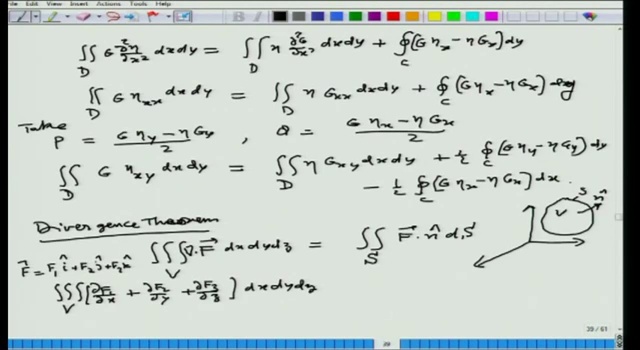 ∬_D G ∂²η/∂x² dxdy = ∬_D η ∂²G/∂x² dxdy + ∮_C (G η_x − η G_x) dy
∬_D G η_xx dxdy = ∬_D η G_xx dxdy + ∮_C (G η_x − η G_x) dy
Take P = (G η_y − η G_y)/2 , Q = (G η_x − η G_x)/2
∬_D G η_xy dxdy = ∬_D η G_xy dxdy + ½ ∮_C (G η_y − η G_y) dy
− ½ ∮_C (G η_x − η G_x) dx.
V S n̂
Divergence Theorem
F⃗ = F₁î + F₂ĵ + F₃k̂ ∭_V ∇·F⃗ dxdydz = ∬_S F⃗·n̂ dS
∭_V [∂F₁/∂x + ∂F₂/∂y + ∂F₃/∂z] dxdydz
29 / 61
29